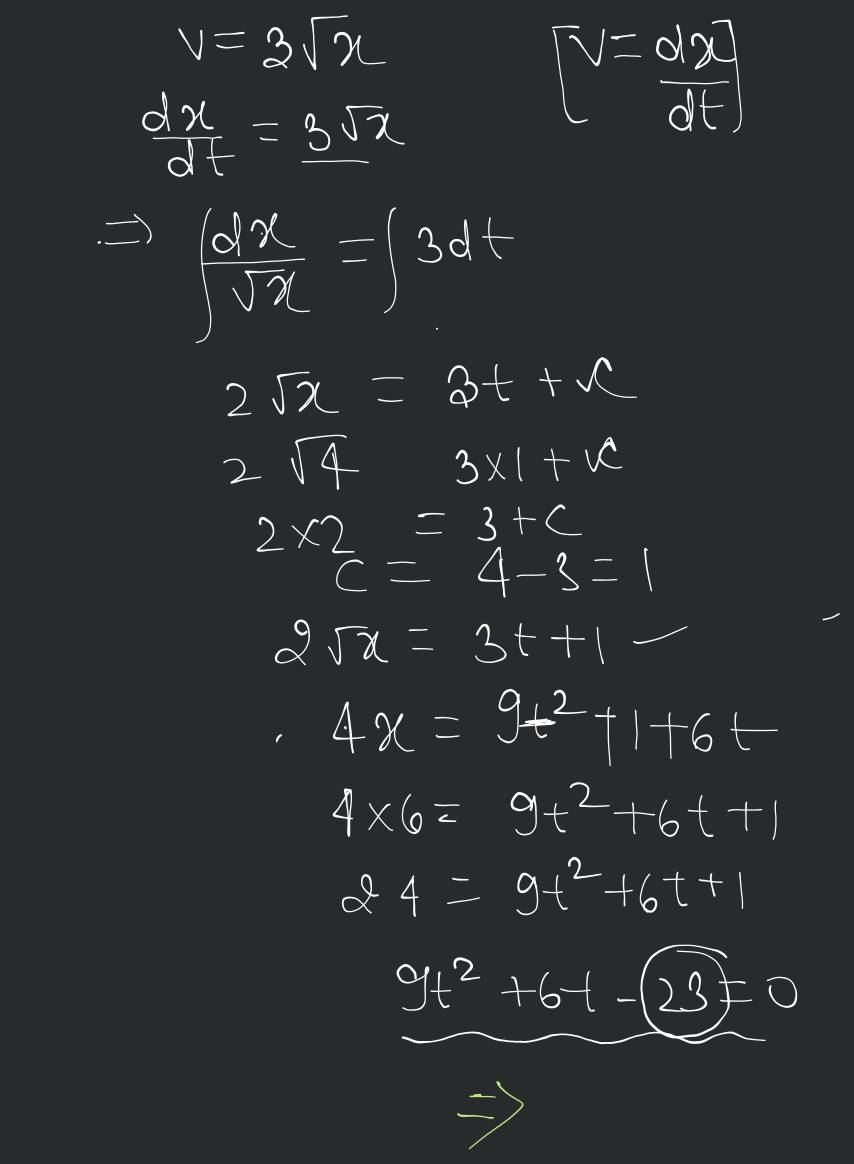 v = 3√x [v = dx/dt]
dx/dt = 3√x
⇒ ∫dx/√x = ∫3dt
2√x = 3t + c
2√4 3×1 + c
2×2 = 3+c
c = 4-3 = 1
2√x = 3t+1 —
4x = 9t²+1+6t
4×6 = 9t²+6t+1
24 = 9t²+6t+1
9t²+6t-23=0
⇒